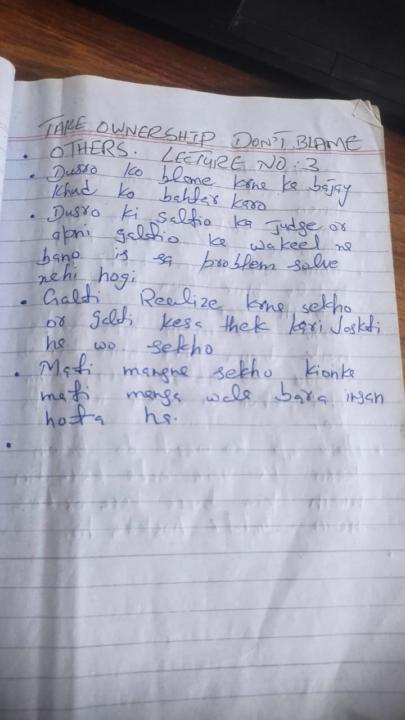 TAKE OWNERSHIP DON'T BLAME
• OTHERS. LECTURE NO: 3
• Dusro ko blame krne ke bajay
khud ko bahtar karo
• Dusro ki galtio ka judge or
apni galtio ke wakeel na
bano is sa problem solve
nehi hogi
• Galti Realize krne sekho
or galti kesa thek kari Jaskti
he wo sekho
• Mafi mangne sekho kionke
mafi manga wale bara insan
hota ha.
•